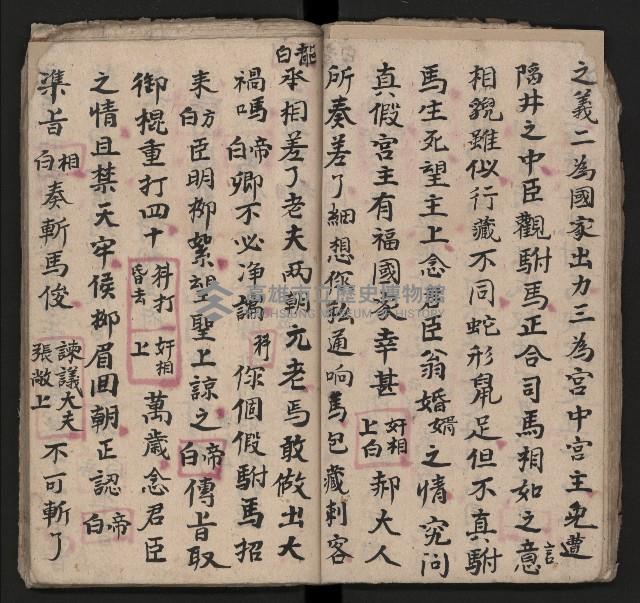 之義二為國家出力三為宮中宮主免遭
陥井之中臣觀駙馬正合司馬相如之意言
相貌雖似行藏不同蛇形鼠足但不真駙
馬生死望主上念臣翁婚婿之情究问
真假宮主有福國家幸甚 奸相上白 郝大人
所奏差了細想你私通响馬包藏刺客
龍白
承相差了老夫两朝元老焉敢做出大
禍嗎 帝白 卿不必净讒 科 你個假駙馬招
来 方白 臣明柳絮望聖上諒之 帝白 傳旨取
御棍重打四十 科打昏去 奸相上 萬歲念君臣
之情且禁天牢候柳眉回朝正認 帝白
準旨 相白 奏斬馬俊 諫議大夫張敞上 不可斬了
高雄市立歷史博物館
KAOHSIUNG MUSEUM OF HISTORY